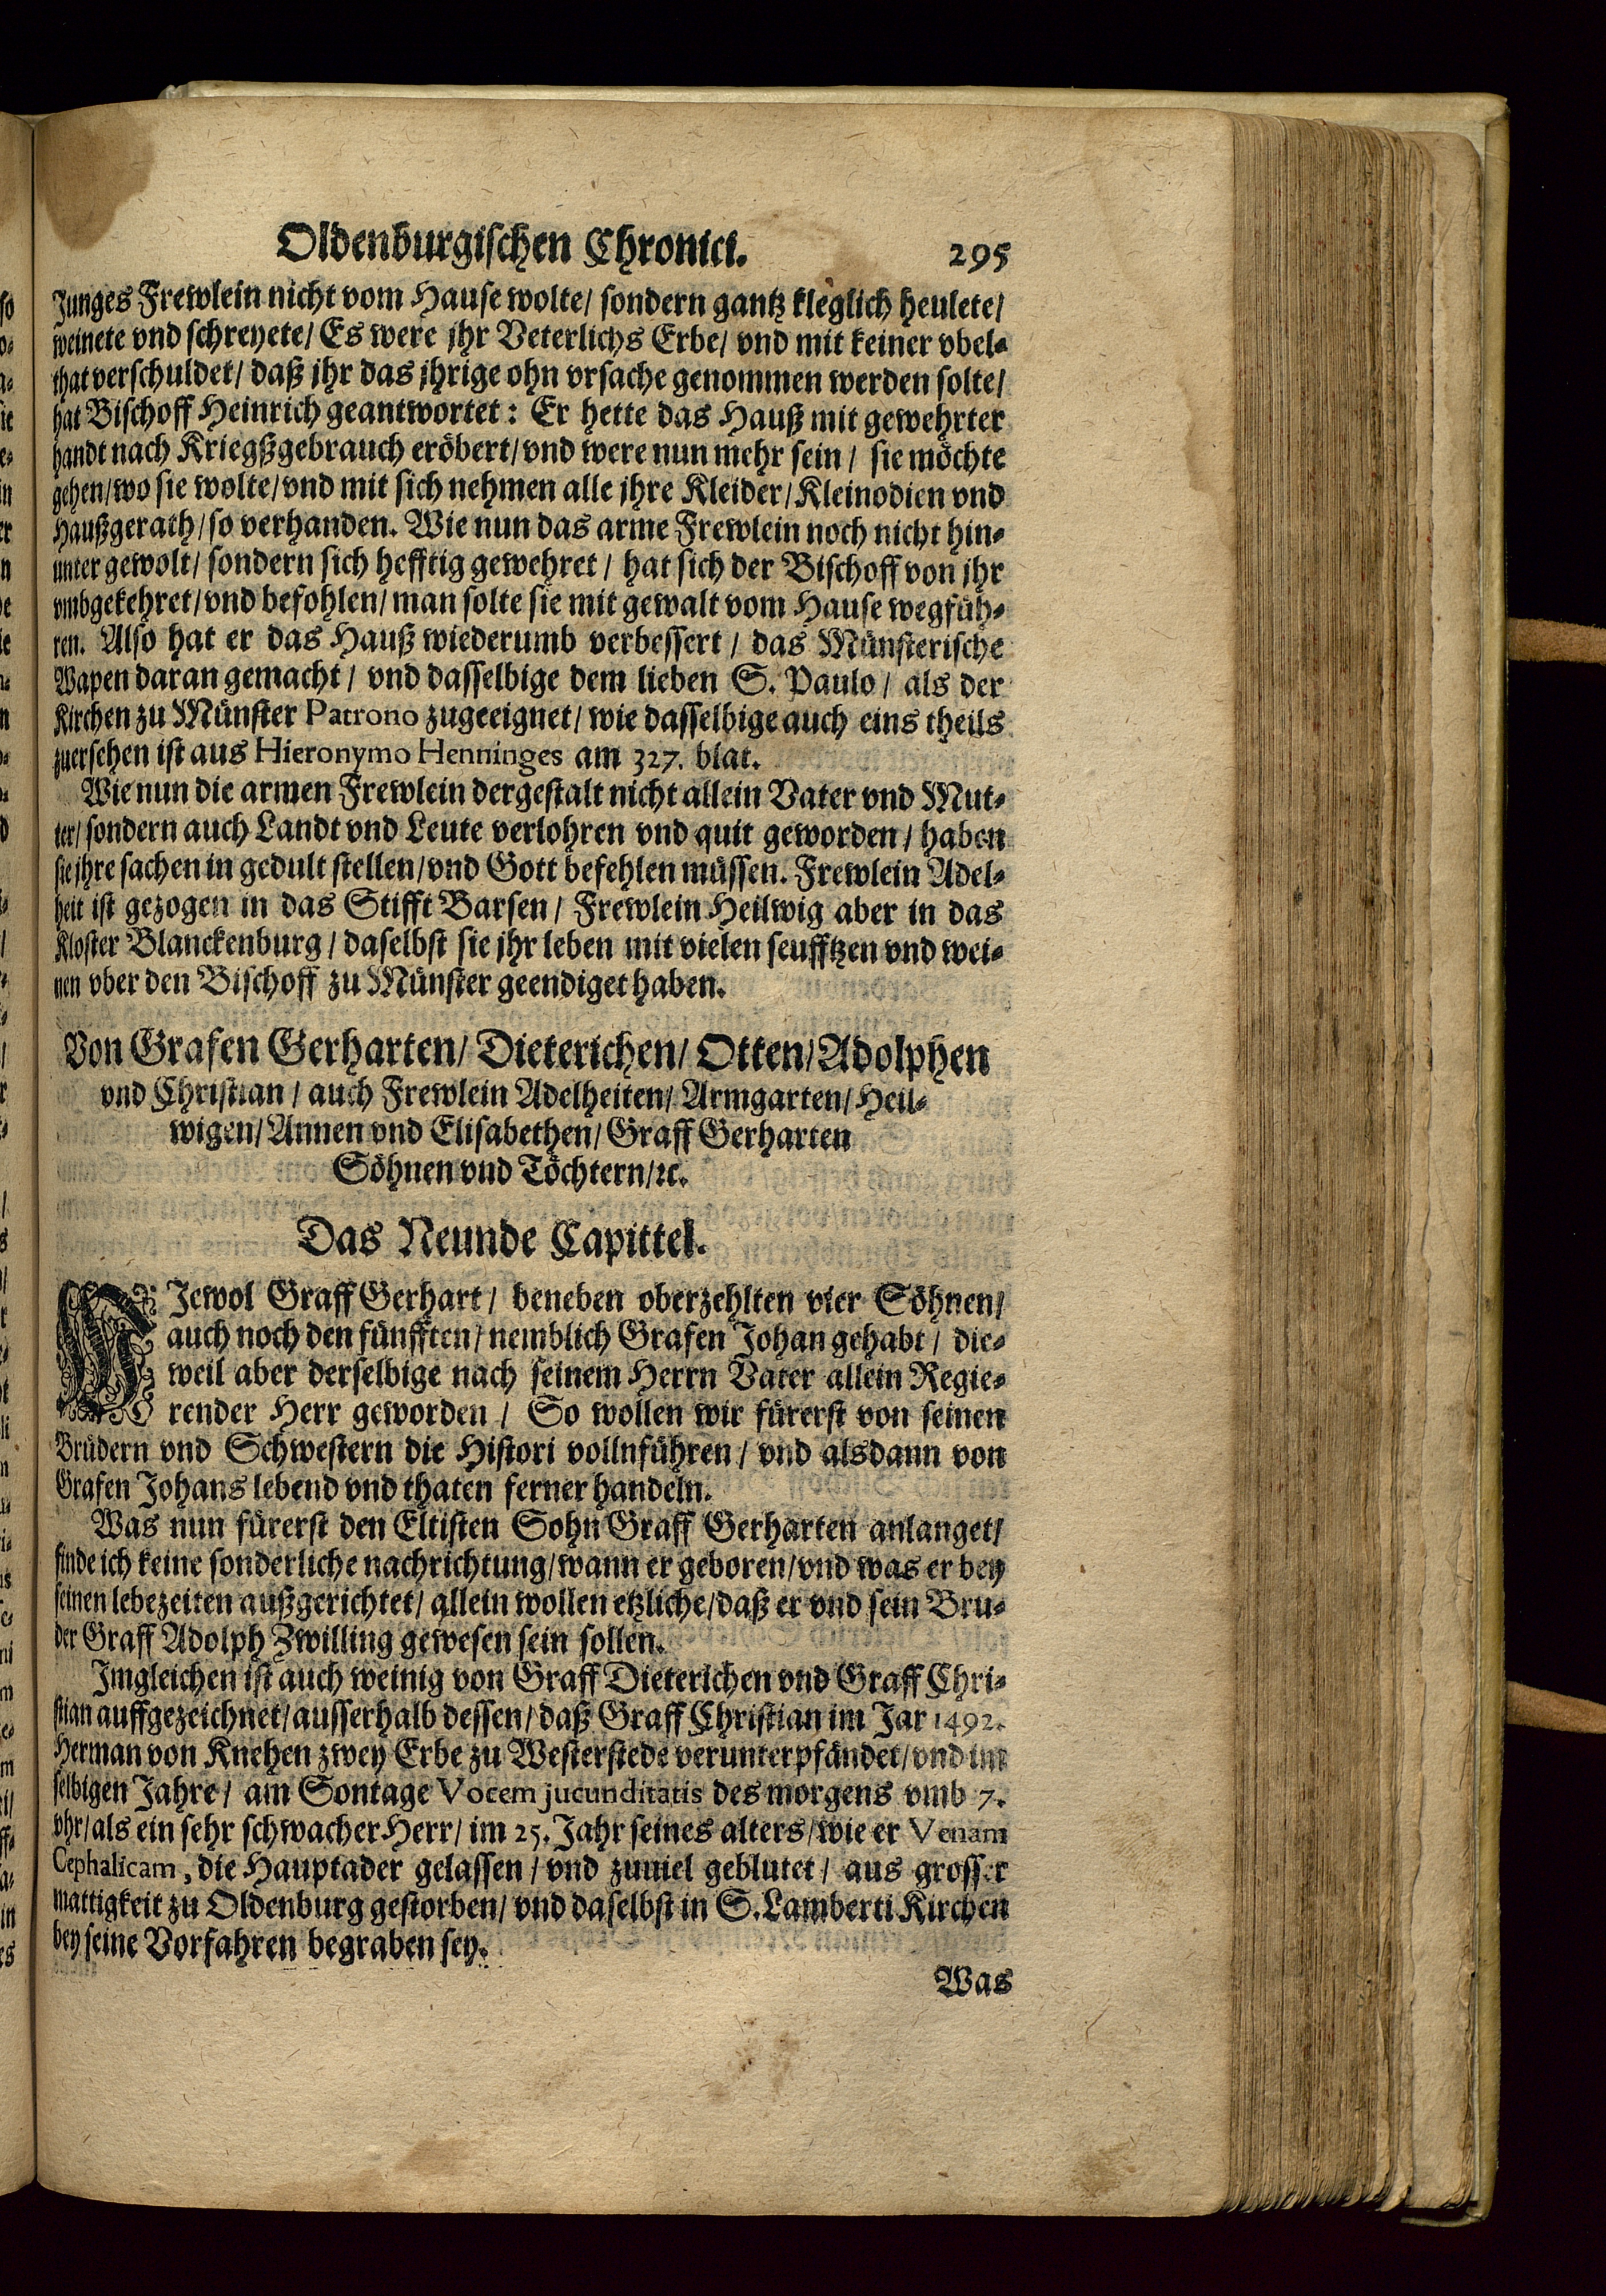 Oldenburgischen Chronici. 295
Junges Frewlein nicht vom Hause wolte/ sondern gantz kleglich heulete/
weinete vnd schreyete/ Es were jhr Veterlichs Erbe/ vnd mit keiner vbel-
that verschuldet/ daß jhr das jhrige ohn vrsache genommen werden solte/
hat Bischoff Heinrich geantwortet: Er hette das Hauß mit gewehrter
handt nach Kriegßgebrauch eröbert/ vnd were nun mehr sein/ sie möchte
gehen/ wo sie wolte/ vnd mit sich nehmen alle jhre Kleider/ Kleinodien vnd
Haußgerath/ so verhanden. Wie nun das arme Frewlein noch nicht hin-
unter gewolt/ sondern sich hefftig gewehret/ hat sich der Bischoff von jhr
vmbgekehret/ vnd befohlen/ man solte sie mit gewalt vom Hause wegfüh-
ren. Also hat er das Hauß wiederumb verbessert/ das Münsterische
Wapen daran gemacht/ vnd dasselbige dem lieben S. Paulo/ als der
Kirchen zu Münster Patrono zugeeignet/ wie dasselbige auch eins theils
zuersehen ist aus Hieronymo Henninges am 327. blat.
Wie nun die armen Frewlein dergestalt nicht allein Vater vnd Mut-
ter/ sondern auch Landt vnd Leute verlohren vnd quit geworden/ haben
sie jhre sachen in gedult stellen/ vnd Gott befehlen müssen. Frewlein Adel-
heit ist gezogen in das Stifft Barsen/ Frewlein Heilwig aber in das
Kloster Blanckenburg/ daselbst sie jhr leben mit vielen seufftzen vnd wei-
nen vber den Bischoff zu Münster geendiget haben.
Von Grafen Gerharten/ Dieterichen/ Otten/ Adolphen
vnd Christian/ auch Frewlein Adelheiten/ Armgarten/ Heil-
wigen/ Annen vnd Elisabethen/ Graff Gerharten
Söhnen vnd Töchtern/ ꝛc.
Das Neunde Capittel.
WJewol Graff Gerhart/ beneben oberzehlten vier Söhnen/
auch noch den fünfften/ nemblich Grafen Johan gehabt/ die-
weil aber derselbige nach seinem Herrn Vater allein Regie-
render Herr geworden/ So wollen wir fürerst von seinen
Brüdern vnd Schwestern die Histori vollnführen/ vnd alsdann von
Grafen Johans lebend vnd thaten ferner handeln.
Was nun fürerst den Eltisten Sohn Graff Gerharten anlanget/
finde ich keine sonderliche nachrichtung/ wann er geboren/ vnd was er bey
seinen lebezeiten außgerichtet/ allein wollen etzliche/ daß er vnd sein Bru-
der Graff Adolph Zwilling gewesen sein sollen.
Imgleichen ist auch weinig von Graff Dieterichen vnd Graff Chri-
stian auffgezeichnet/ ausserhalb dessen/ daß Graff Christian im Jar 1492.
Herman von Knehen zwey Erbe zu Westerstede verunterpfändet/ vnd im
selbigen Jahre/ am Sontage Vocem jucunditatis des morgens vmb 7.
vhr/ als ein sehr schwacher Herr/ im 25. Jahr seines alters/ wie er Venam
Cephalicam, die Hauptader gelassen/ vnd zuuiel geblutet/ aus grosser
mattigkeit zu Oldenburg gestorben/ vnd daselbst in S. Lamberti Kirchen
bey seine Vorfahren begraben sey.
Was